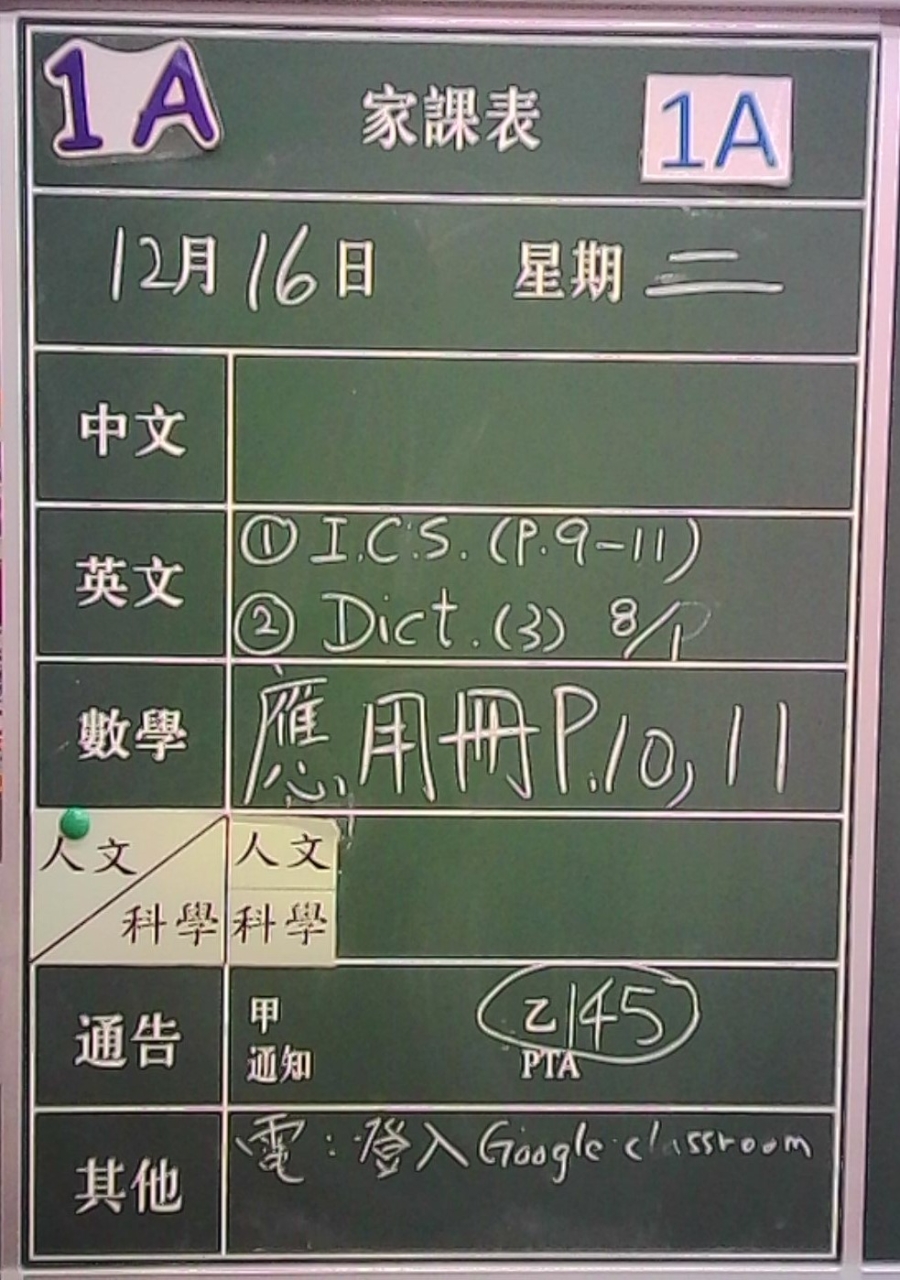 1A 家課表 1A
12月16日 星期二
中文
英文 ① I.C.S. (P.9-11)
② Dict. (3) 8/1
數學 應用冊P.10, 11
人文 人文
科學 科學
通告 甲 乙145
通知 PTA
其他 電:登入Google classroom